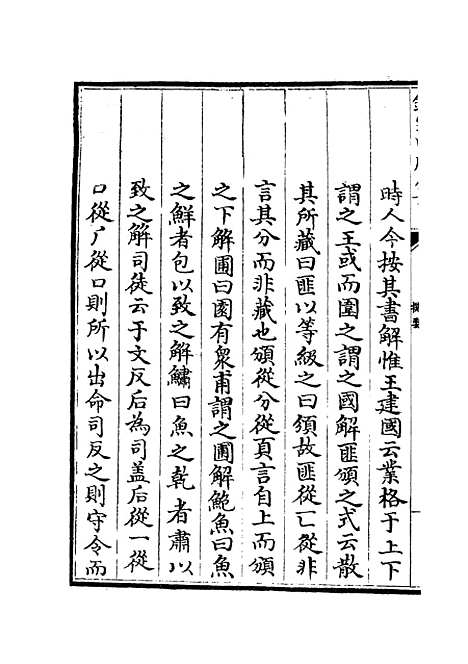 時人今按其書解惟王建國云業格于上下
謂之王或而圍之謂之國解匪頒之式云散
其所藏曰匪以等級之曰頒故匪從匚從非
言其分而非藏也頒從分從頁言自上而頒
之下解圃曰園有衆甫謂之圃解鮑魚曰魚
之鮮者包以致之解鱐曰魚之乾者肅以
致之解司徒云于文反后為司盖后從一從
口從厂從口則所以出命司反之則守令而